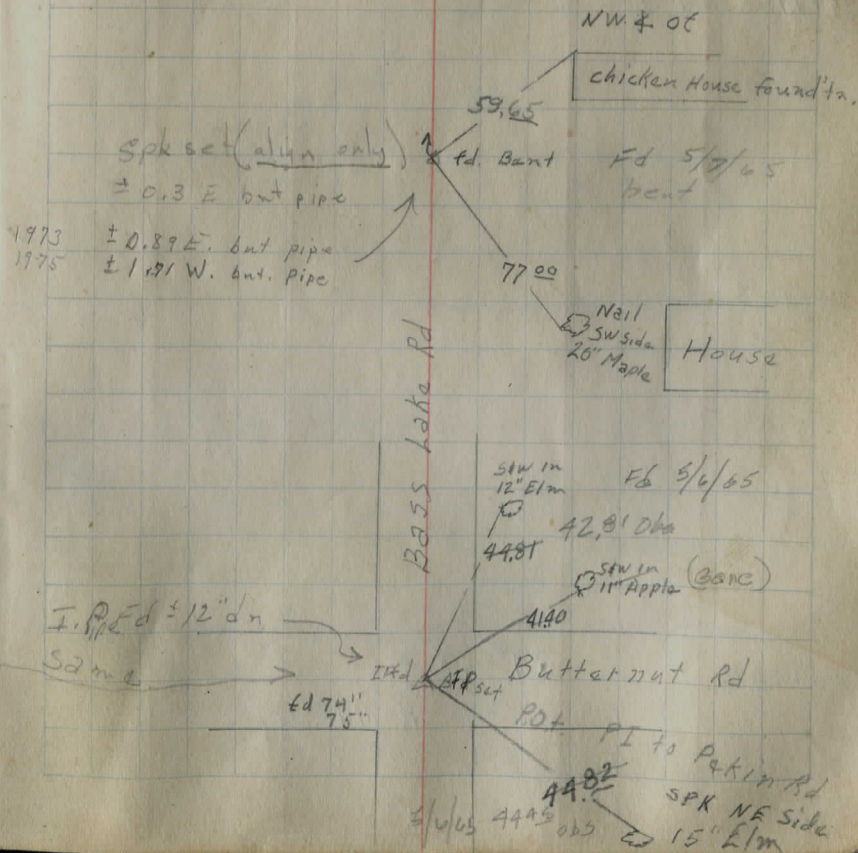 NW. & of
chicken House found'tn.
59.65
Spk set (align only)
fd. Bent
Fd 5/7/65
bent
± 0.3 E bnt pipe
1973 ± 0.89 E. bnt pipe
1975 ± 1.71 W. bnt. pipe
77 00
Nail
SW side
20" Maple
House
Bass Lake Rd
S+W in
12" Elm
Fd 5/6/65
42.81 Obs
44.81
S+W in
11" Apple
(Gone)
41.40
I. Pipe Fd ± 12" dn
Same
IPfd
IP set
Butternut Rd
fd 74"
75"
POt. PI to Pekin Rd
44.82
SPK NE Side
15" Elm
5/6/65 44.45 obs